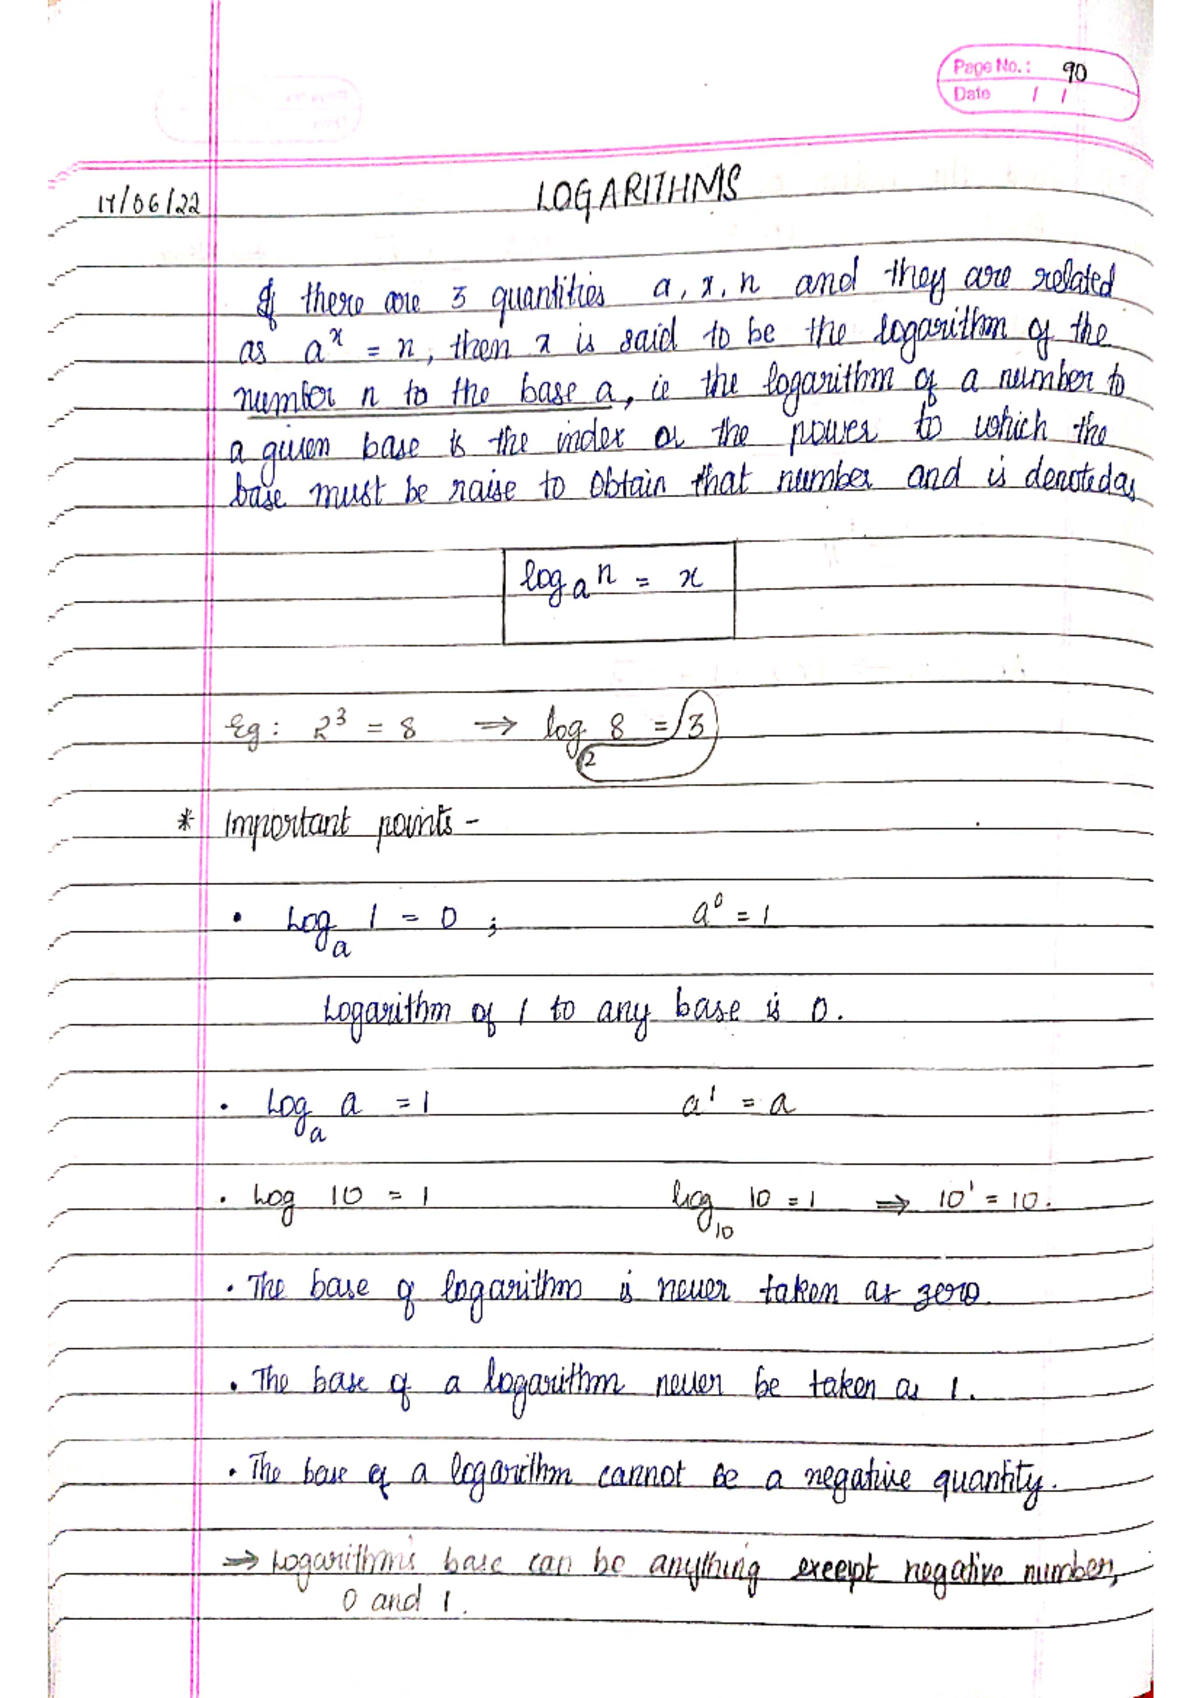 Page No.: 90
Date / /
17/06/22 LOGARITHMS
If there are 3 quantities a, x, n and they are related
as a^x = n, then x is said to be the logarithm of the
number n to the base a, ie the logarithm of a number to
a given base is the index or the power to which the
base must be raise to obtain that number and is denoted as
log_a n = x
Eg: 2^3 = 8 ⇒ log_2 8 = 3
* Important points -
• Log_a 1 = 0 ; a^0 = 1
Logarithm of 1 to any base is 0.
• Log_a a = 1 a^1 = a
• Log 10 = 1 log_10 10 = 1 ⇒ 10^1 = 10.
• The base of logarithm is never taken as zero.
• The base of a logarithm never be taken as 1.
• The base of a logarithm cannot be a negative quantity.
⇒ Logarithm's base can be anything exeept negative number,
0 and 1.